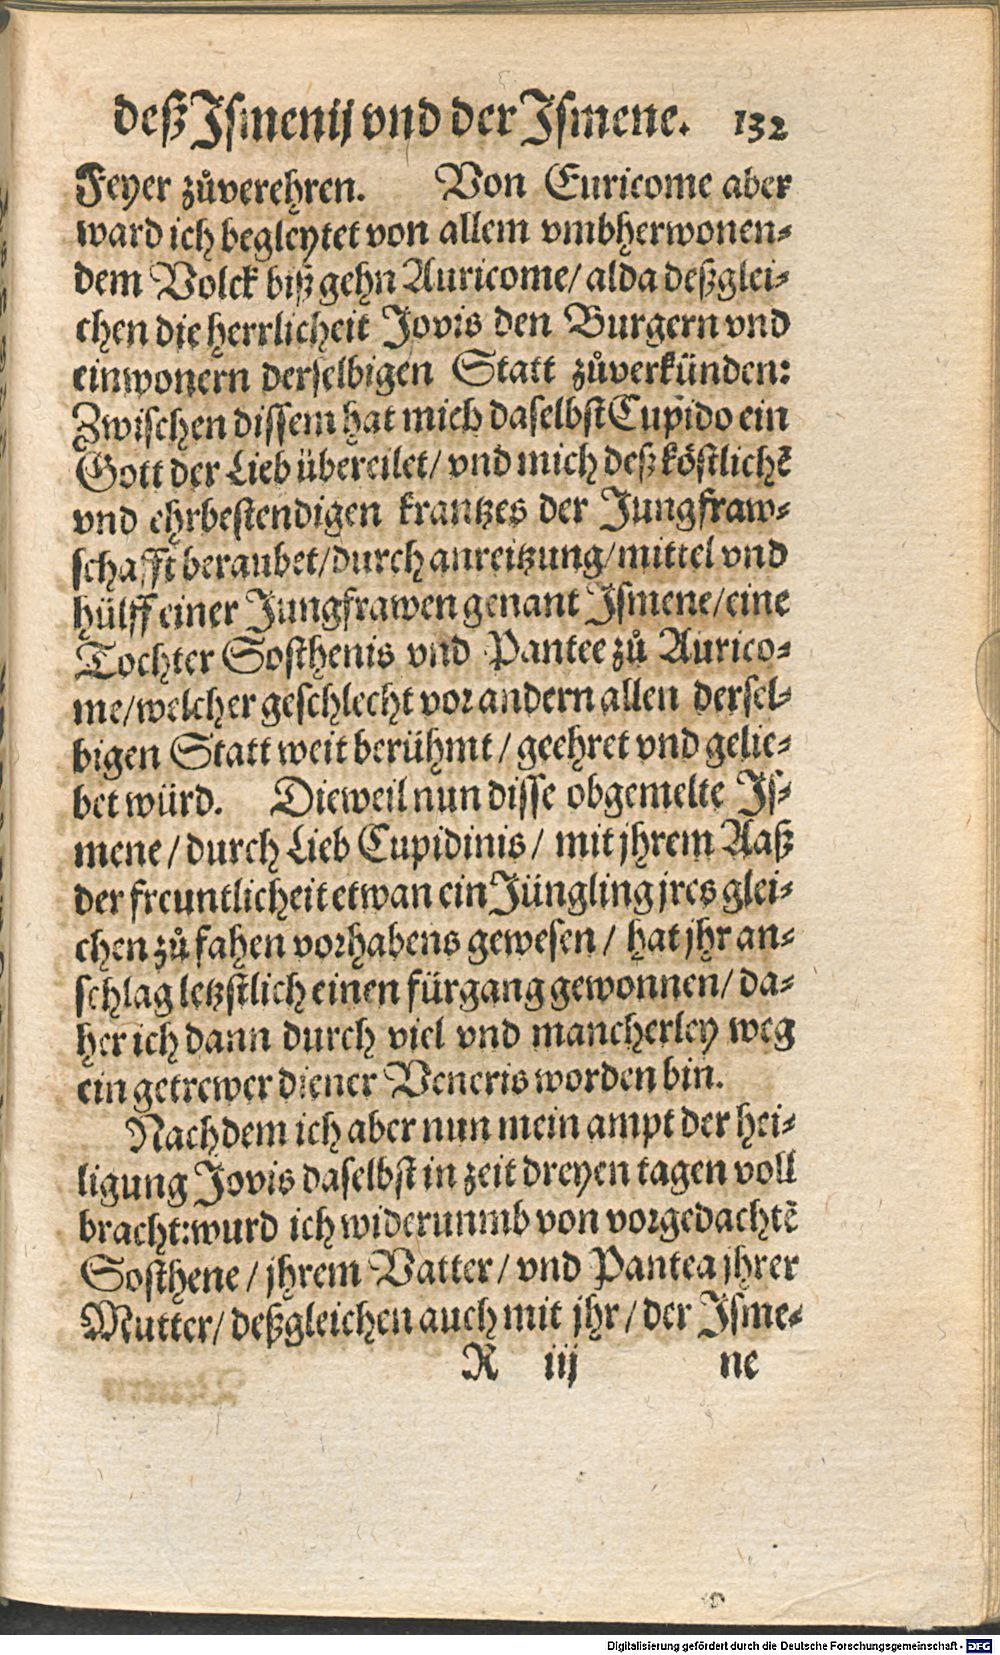 deß Jsmenij vnd der Jsmene. 132
Feyer zůverehren. Von Euricome aber
ward ich begleytet von allem vmbherwonen⸗
dem Volck biß gehn Auricome/ alda deßglei⸗
chen die herrlicheit Jovis den Burgern vnd
einwonern derselbigen Statt zůverkünden:
Zwischen dissem hat mich daselbst Cupido ein
Gott der Lieb übereilet/ vnd mich deß köstlichẽ
vnd ehrbestendigen krantzes der Jungfraw⸗
schafft beraubet/durch anreitzung/mittel vnd
hülff einer Jungfrawen genant Jsmene/eine
Tochter Sosthenis vnd Pantee zů Aurico⸗
me/welcher geschlecht vor andern allen dersel⸗
bigen Statt weit berühmt/ geehret vnd gelie⸗
bet würd. Dieweil nun disse obgemelte Js⸗
mene/durch Lieb Cupidinis/ mit jhrem Aaß
der freuntlicheit etwan ein Jüngling jres glei⸗
chen zů fahen vorhabens gewesen/ hat jhr an⸗
schlag letzstlich einen fürgang gewonnen/ da⸗
her ich dann durch viel vnd mancherley weg
ein getrewer diener Veneris worden bin.
Nachdem ich aber nun mein ampt der hei⸗
ligung Jovis daselbst in zeit dreyen tagen voll
bracht:wurd ich widerunmb von vorgedachtẽ
Sosthene/ jhrem Vatter/ vnd Pantea jhrer
Mutter/ deßgleichen auch mit jhr/ der Jsme⸗
R iij ne
Digitalisierung gefördert durch die Deutsche Forschungsgemeinschaft - DFG